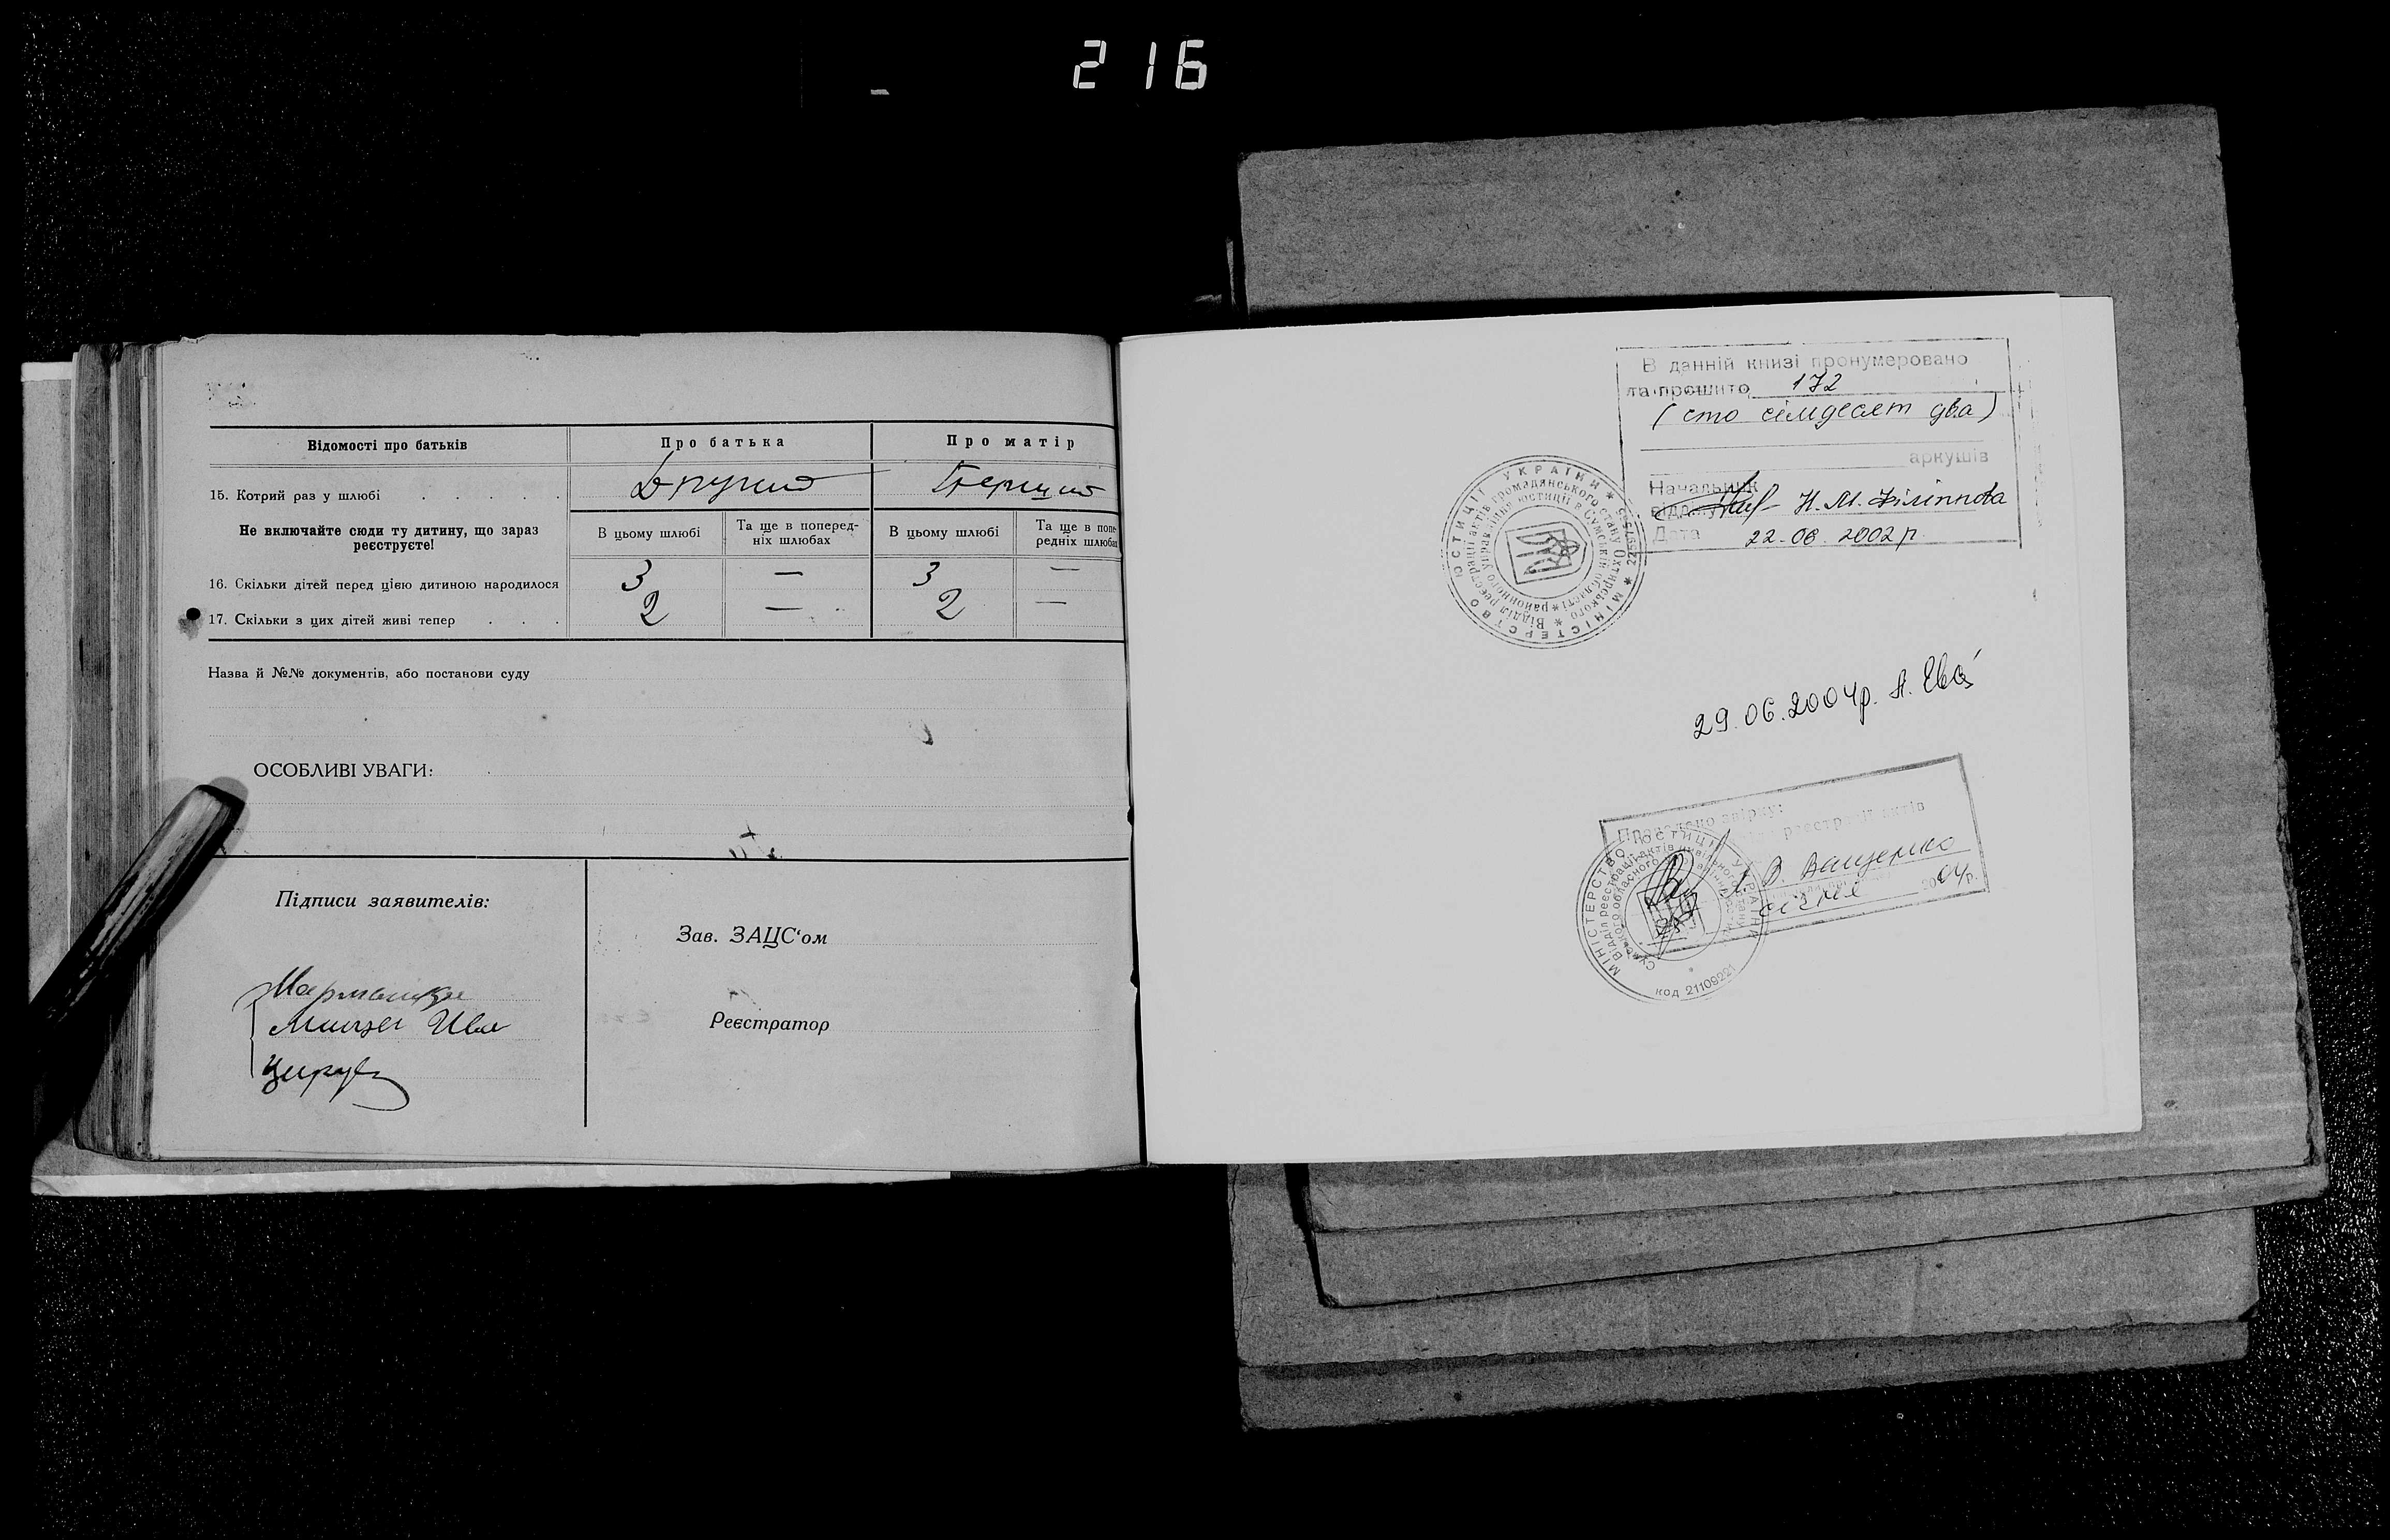 216
Відомості про батьків
Про батька
Про матір
15. Котрий раз у шлюбі . . . . .
Другий
Перший
Не включайте сюди ту дитину, що зараз
реєструєте!
В цьому шлюбі
Та ще в поперед-
ніх шлюбах
В цьому шлюбі
Та ще в попе-
редніх шлюбах
16. Скільки дітей перед цією дитиною народилося
3 — 3 —
17. Скільки з цих дітей живі тепер . . .
2 — 2 —
Назва й №№ документів, або постанови суду
ОСОБЛИВІ УВАГИ:
Підписи заявителів:
Зав. ЗАЦС'ом
Реєстратор
В данній книзі пронумеровано
та прошито 172
(сто сімдесят два)
аркушів
Начальник
відділу Н. М. Філіппова
Дата 22.08.2002 р.
МІНІСТЕРСТВО ЮСТИЦІЇ УКРАЇНИ
Відділ реєстрації актів громадянського стану Охтирського
районного управління юстиції в Сумській області
29.06.2004р.
Проведено звірку:
реєстрації актів
В. Ващенко
січня 2004р.
МІНІСТЕРСТВО ЮСТИЦІЇ УКРАЇНИ
код 21109221